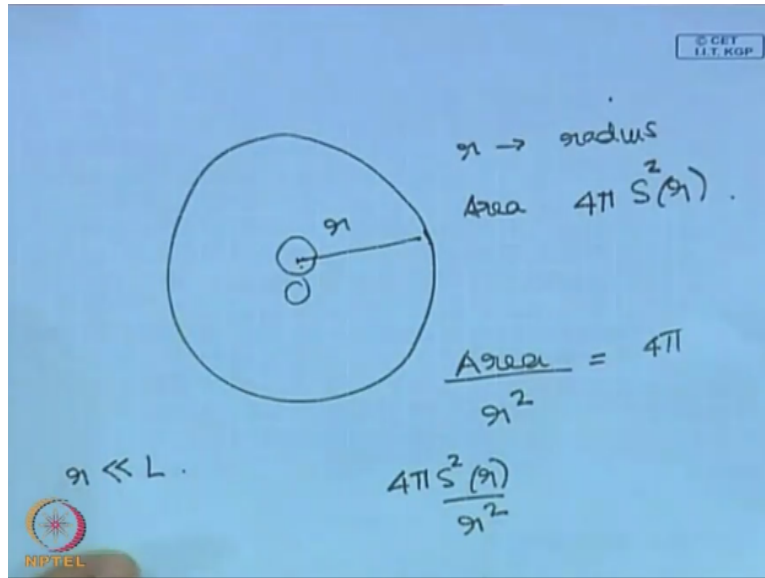 © CET
I.I.T. KGP
r → radius
Area 4π S²(r) .
r
O
Area / r² = 4π
r << L .
4π S²(r) / r²
NPTEL